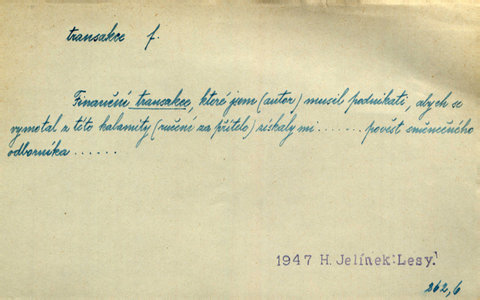 transakce f.
Finanční transakce, které jsem (autor) musil podnikati, abych se
vymotal z této kalamity (ručení za přítele) získaly mi ....... pověst směnečného
odborníka ......
1947 H. Jelínek: Lesy.
262,6